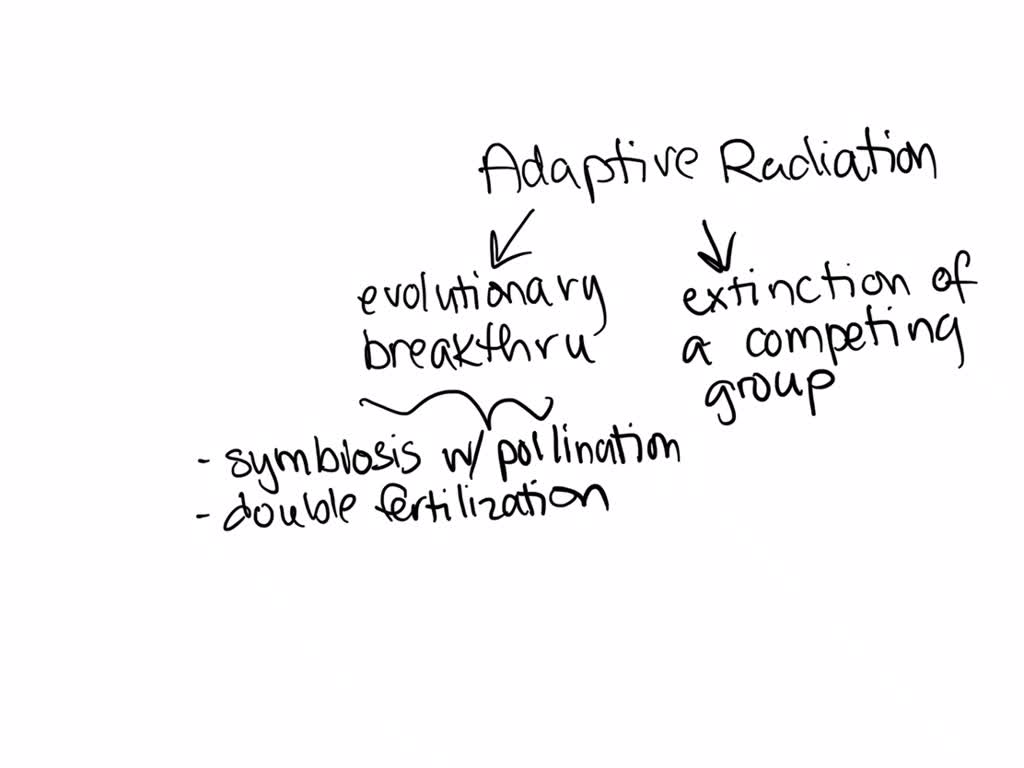 Adaptive Radiation
evolutionary
breakthru
extinction of
a competing
group
- symbiosis w/ pollination
- double fertilization